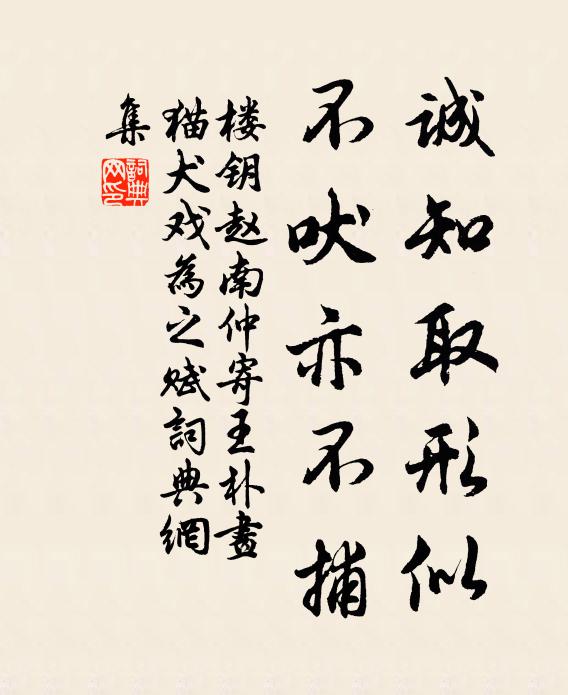 誠知取形似
不吠亦不捕
楼钥赵南仲寄王朴畫
猫犬戏為之赋詞典網
集
詞典
网印